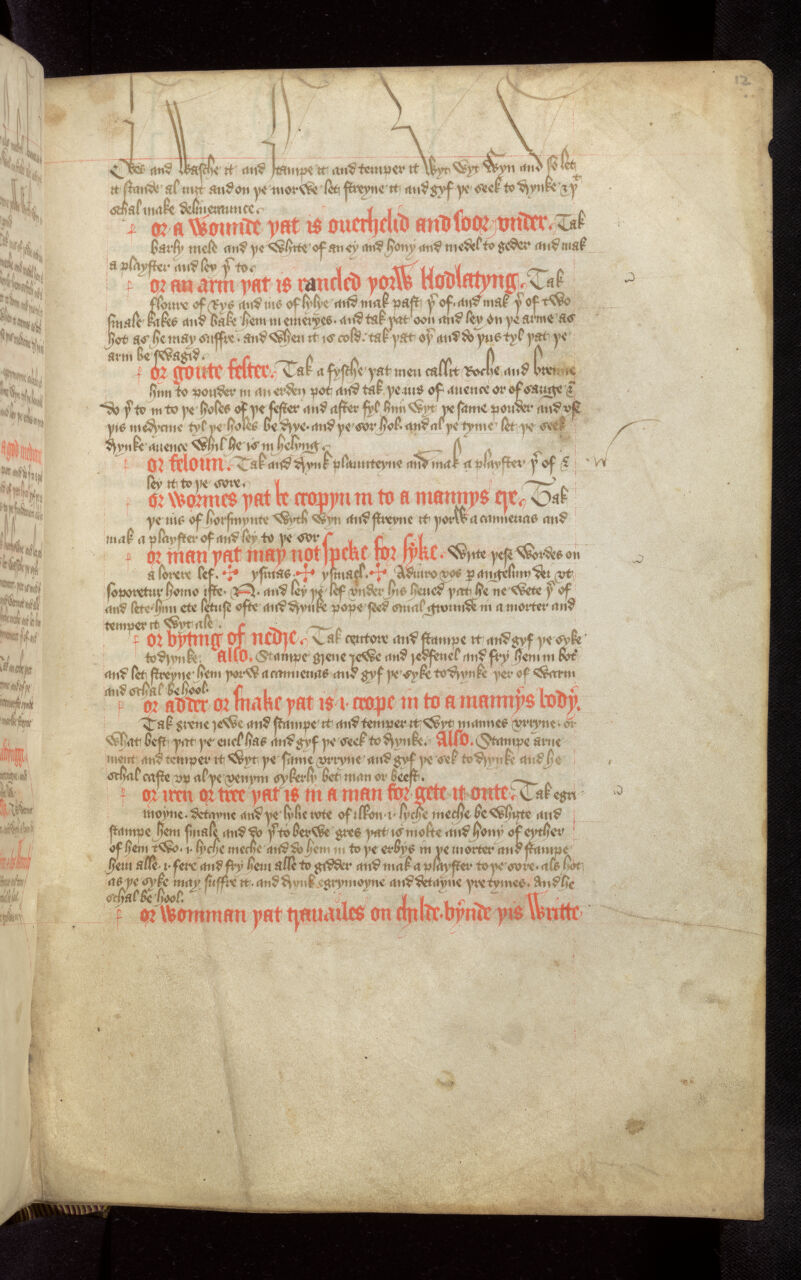 12
and wasche it and stampe it and temper it wyt wyn and so let
it stande al nizt and on ye morwe let streyne it and gyf ye seek to drynke & yt
schal make deliueraunce.
or a wounde yat is ouerhelid and soor vnder. Tak
barly mele and ye white of an ey and hony and medel to geder and mak
a playster and ley yt to.
or an arm yat is rancled yorw blodlatyng. Tak
floure of Rys and ius of and mak past yr of. and mak yr of two
smale kakes and bake hem in emeryes. and tak yat oon and ley on ye arme as
hot as he may suffre. and when it is cold. tak yat oyr and do yus tyl yat ye
arm be swagid.
or goute fester. Tak a fysche yat men callit Roche and brenne
him to pouder in an erden pot and tak ye ius of auence or of sauge &
do yt to in to ye holes of ye fester and after fyl hem wyt ye same pouder and vse
yis medycine tyl ye holes be drye. and ye sor hol. and al ye tyme let ye seek
drynke auence whil he is in helyng.
or feloun. Tak and drynk plaunteyne and mak a playster yr of &
ley it to ye sore.
or wormes yat be cropyn in to a mannys ere. Tak
ye ius of horsmynte wyth wyn and streyne it yorw a canneuas and
mak a playster of and ley to ye sor
or man yat may not speke for syke. Write yese wordes on
a lorere lef. ✢ ysmas. ✢ ysmael. ✢ Adiuro vos p angelum dei vt
soporetur homo iste. N. and ley ye lef vnder his heued yat he ne wete yr of
and lete him ete letuse ofte and drynke popy seed smal grounde in a morter and
temper it wyt ale.
or byting of nedre. Tak centore and stampe it and gyf ye syke
to drynke. also. Stampe grene rewe and and fry hem in bot
and let streyne hem yorw a canneuas and gyf ye syke to drynke yer of warm
and schal be hool.
or adder or snake yat is .i. crope in to a mannys body.
Tak grene rewe and stampe it and temper it wyt mannes vryne. or
what best yat ye euel has and gyf ye seek to drynke. also. Stampe arne
ment and temper it wyt ye same vryne and gyf ye sek to drynke and he
schal caste vp al ye venym sykerly bet man or beest.
or iren or tree yat is in a man for gete it oute. Tak egri
moyne. detayne and ye lylie rote of ilkon .i. lyche meche be whyte and
stampe hem smale and do yr to berwe gres yat is molte and hony of eyther
of hem two .i. lyche meche and do hem in to ye erbys in ye morter and stampe
hem alle .i. fere and fry hem alle to gidder and mak a playster to ye sore. als hot
as ye syke may suffre it. and drynk egrymoyne and detayne yre tymes. and he
schal be hool.
or womman yat trauailes on childe. bynde yis writte